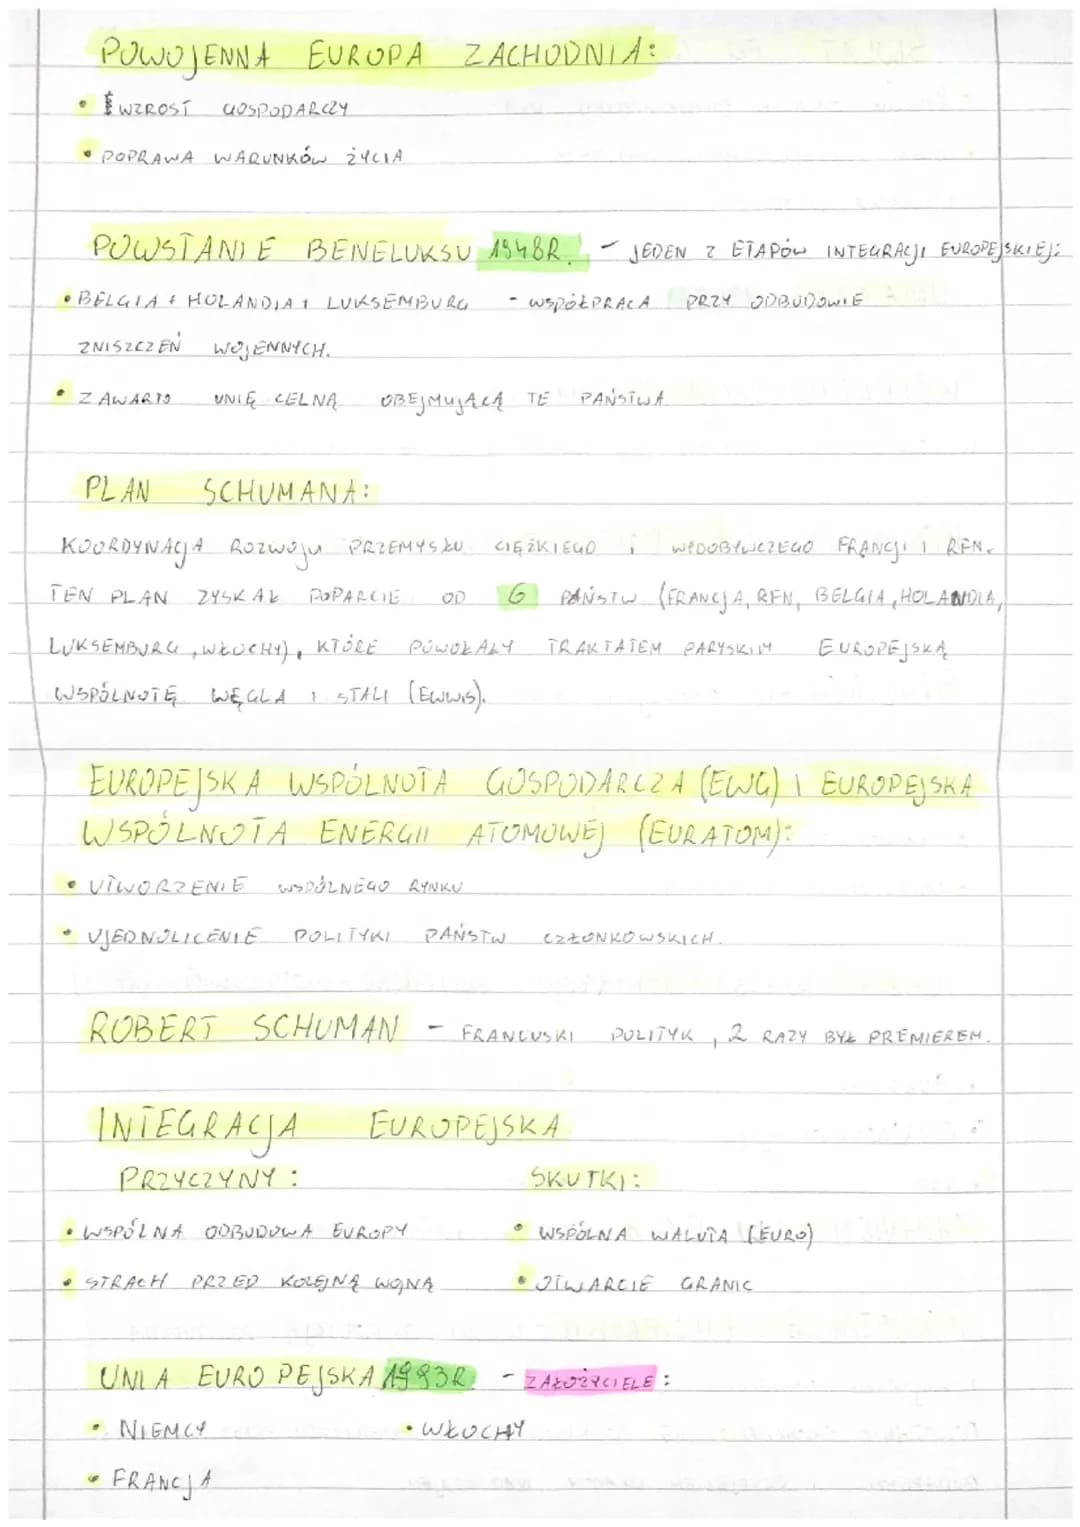 POWOJENNA EUROPA ZACHODNIA:
• WZROST GOSPODARCZY
• POPRAWA WARUNKÓW ŻYCIA
POWSTANIE BENELUKSU 1948R. - JEDEN Z ETAPÓW INTEGRACJI EUROPEJSKIEJ:
• BELGIA + HOLANDIA I LUKSEMBURG - WSPÓŁPRACA PRZY ODBUDOWIE
ZNISZCZEŃ WOJENNYCH.
• ZAWARTO UNIĘ CELNĄ OBEJMUJĄCĄ TE PAŃSTWA
PLAN SCHUMANA:
KOORDYNACJA ROZWOJU PRZEMYSŁU CIĘŻKIEGO I WYDOBYWCZEGO FRANCJI I RFN.
TEN PLAN ZYSKAŁ POPARCIE OD 6 PAŃSTW (FRANCJA, RFN, BELGIA, HOLANDIA,
LUKSEMBURG, WŁOCHY), KTÓRE POWOŁAŁY TRAKTATEM PARYSKIM EUROPEJSKĄ
WSPÓLNOTĘ WĘGLA I STALI (EWWiS).
EUROPEJSKA WSPÓLNOTA GOSPODARCZA (EWG) I EUROPEJSKA
WSPÓLNOTA ENERGII ATOMOWEJ (EURATOM):
• UTWORZENIE WSPÓLNEGO RYNKU
• UJEDNOLICENIE POLITYKI PAŃSTW CZŁONKOWSKICH.
ROBERT SCHUMAN - FRANCUSKI POLITYK, 2 RAZY BYŁ PREMIEREM.
INTEGRACJA EUROPEJSKA
PRZYCZYNY: SKUTKI:
• WSPÓLNA ODBUDOWA EUROPY • WSPÓLNA WALUTA (EURO)
• STRACH PRZED KOLEJNĄ WOJNĄ • OTWARCIE GRANIC
UNIA EUROPEJSKA 1993R. - ZAŁOŻYCIELE:
• NIEMCY • WŁOCHY
• FRANCJA